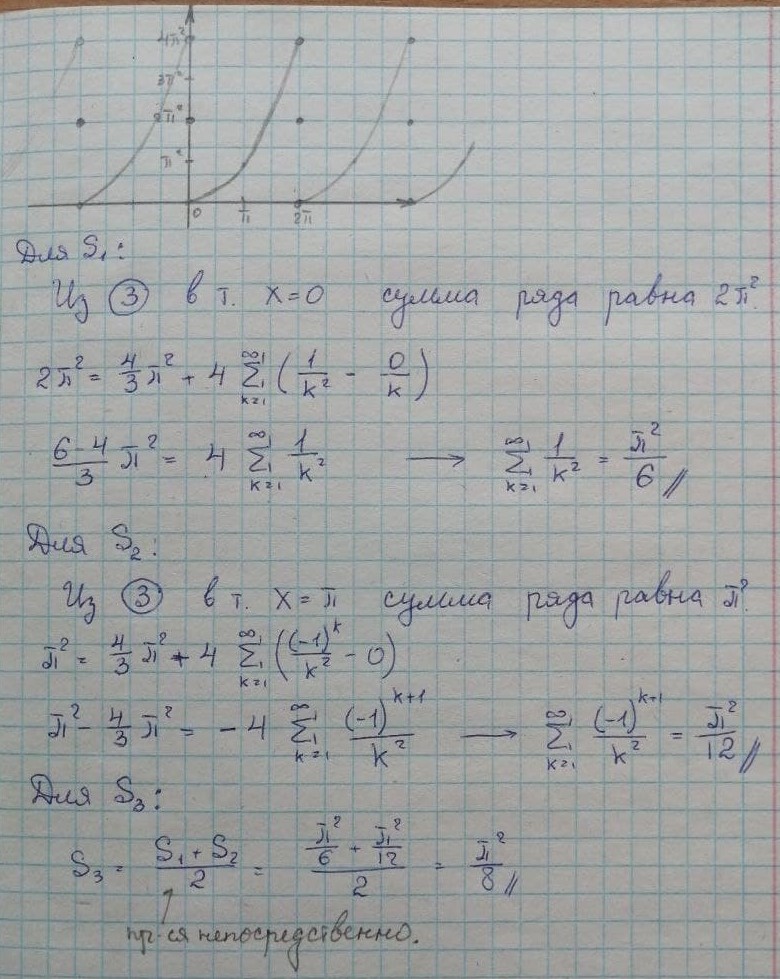 4π²
3π²
2π²
π²
0 π 2π
Для S₁:
Из ③ в т. x=0 сумма ряда равна 2π².
2π² = 4/3 π² + 4 ∑_{k=1}^{∞} (1/k² - 0/k)
(6-4)/3 π² = 4 ∑_{k=1}^{∞} 1/k² → ∑_{k=1}^{∞} 1/k² = π²/6 //
Для S₂:
Из ③ в т. x=π сумма ряда равна π².
π² = 4/3 π² + 4 ∑_{k=1}^{∞} ((-1)^k/k² - 0)
π² - 4/3 π² = -4 ∑_{k=1}^{∞} (-1)^{k+1}/k² → ∑_{k=1}^{∞} (-1)^{k+1}/k² = π²/12 //
Для S₃:
S₃ = (S₁+S₂)/2 = (π²/6 + π²/12)/2 = π²/8 //
пр-ся непосредственно.